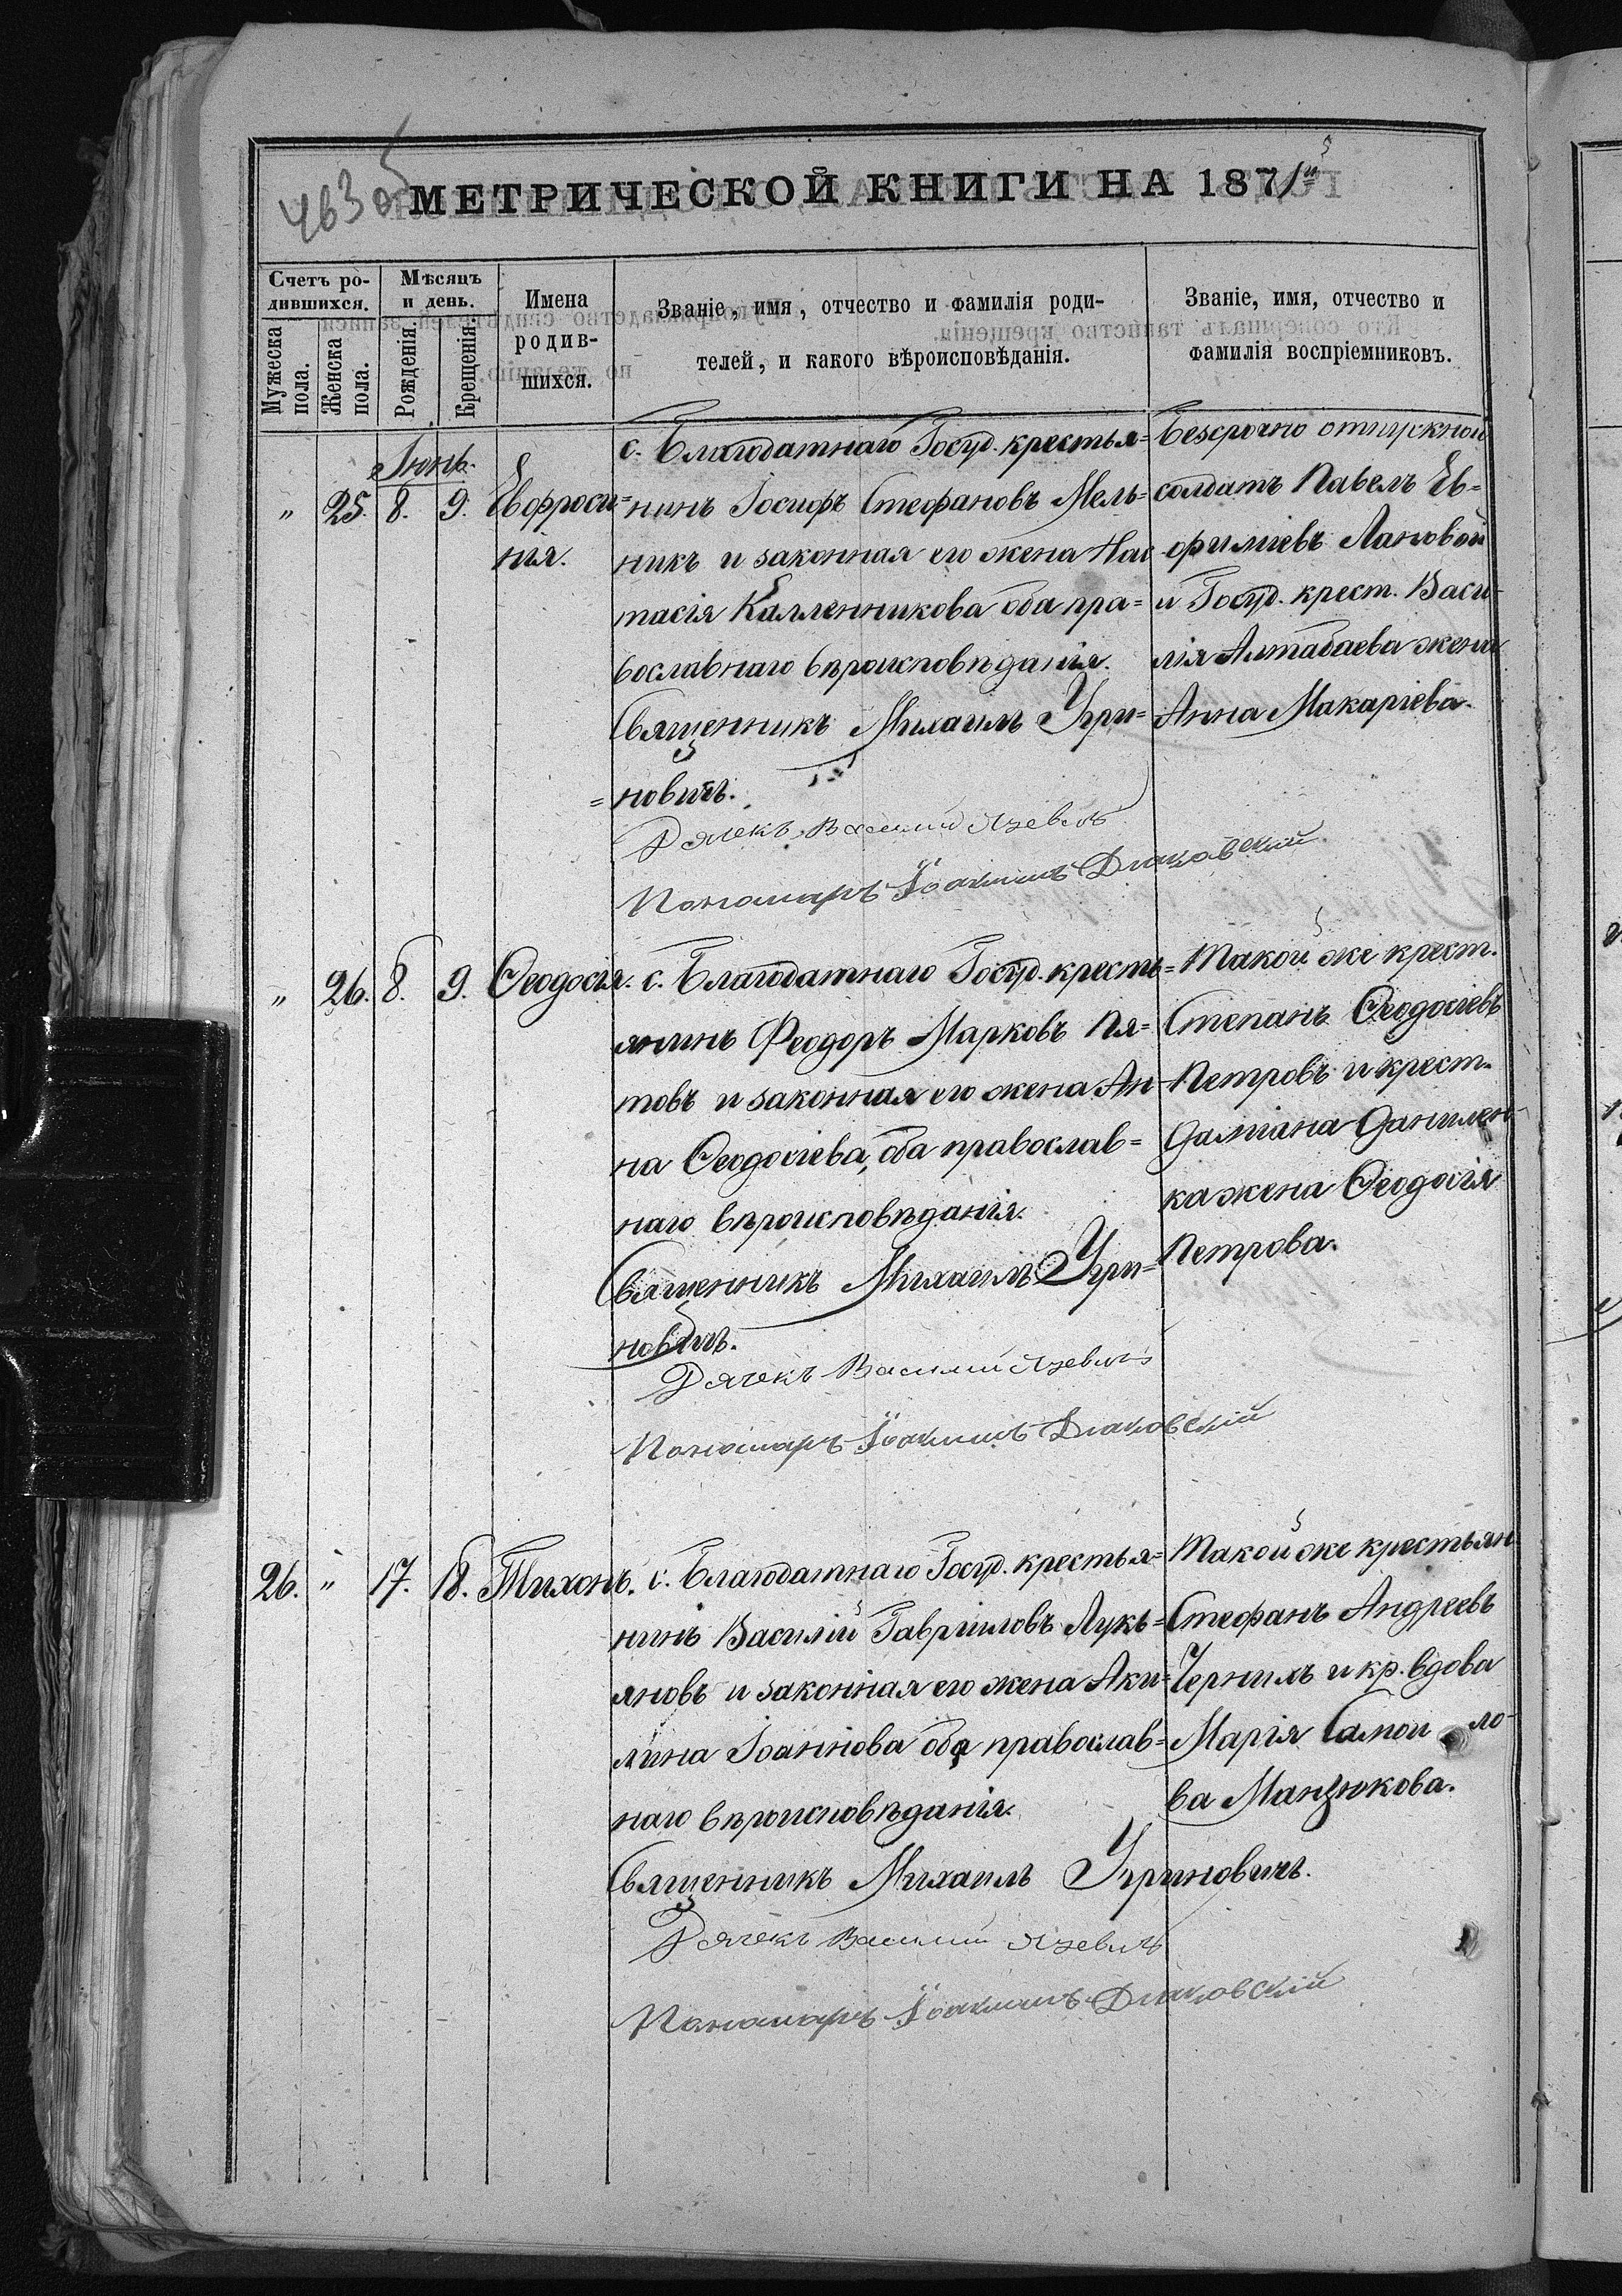 463 об
МЕТРИЧЕСКОЙ КНИГИ НА 1871й
Счетъ ро-
дившихся.
Мужеска
пола.
Женска
пола.
Мѣсяцъ
и день.
Рожденія.
Крещенія.
Имена
родив-
шихся.
Званіе, имя, отчество и фамилія роди-
телей, и какого вѣроисповѣданія.
Званіе, имя, отчество и
фамилія воспріемниковъ.
Іюнь.
" 25. 8. 9. Евфроси=
нія.
с. Благодатнаго Госуд. крестья=
нинъ Іосифъ Стефановъ Мель=
никъ и законная его жена Нас
тасія Калленникова оба пра=
вославнаго вѣроисповѣданія.
Священникъ Михаилъ Угри=
=новичъ.
Дячекъ Василій Язевичъ
Пономарь Іоакимъ Диаковскій
Безсрочно отпускной
солдатъ Павелъ Ев=
фиміевъ Лановой
и Госуд. крест. Васи-
лія Алтабаева жена
Анна Макаріева.
" 26. 8. 9. Ѳеодосія.
с. Благодатнаго Госуд. кресть=
янинъ Феодоръ Марковъ Пя=
товъ и законная его жена Ан
на Ѳеодосіева, оба православ=
наго вѣроисповѣданія.
Священникъ Михаилъ Угри=
новичъ.
Дячекъ Василій Язевичъ
Пономарь Іоакимъ Диаковскій
Такой же крест.
Степанъ Ѳеодосіевъ
Петровъ и крест.
Даміана Данилен-
ка жена Ѳеодосія
Петрова.
26. " 17. 18. Тихонъ.
с. Благодатнаго Госуд. крестья=
нинъ Василій Гавріиловъ Лукь=
яновъ и законная его жена Аки=
лина Іоаннова оба православ=
наго вѣроисповѣданія.
Священникъ Михаилъ Угриновичъ.
Дячекъ Василій Язевичъ
Пономарь Іоакимъ Диаковскій
Такой же крестьян
Стефанъ Андреевъ
и кр. вдова
Марія Самои ло-
ва Манзюкова.